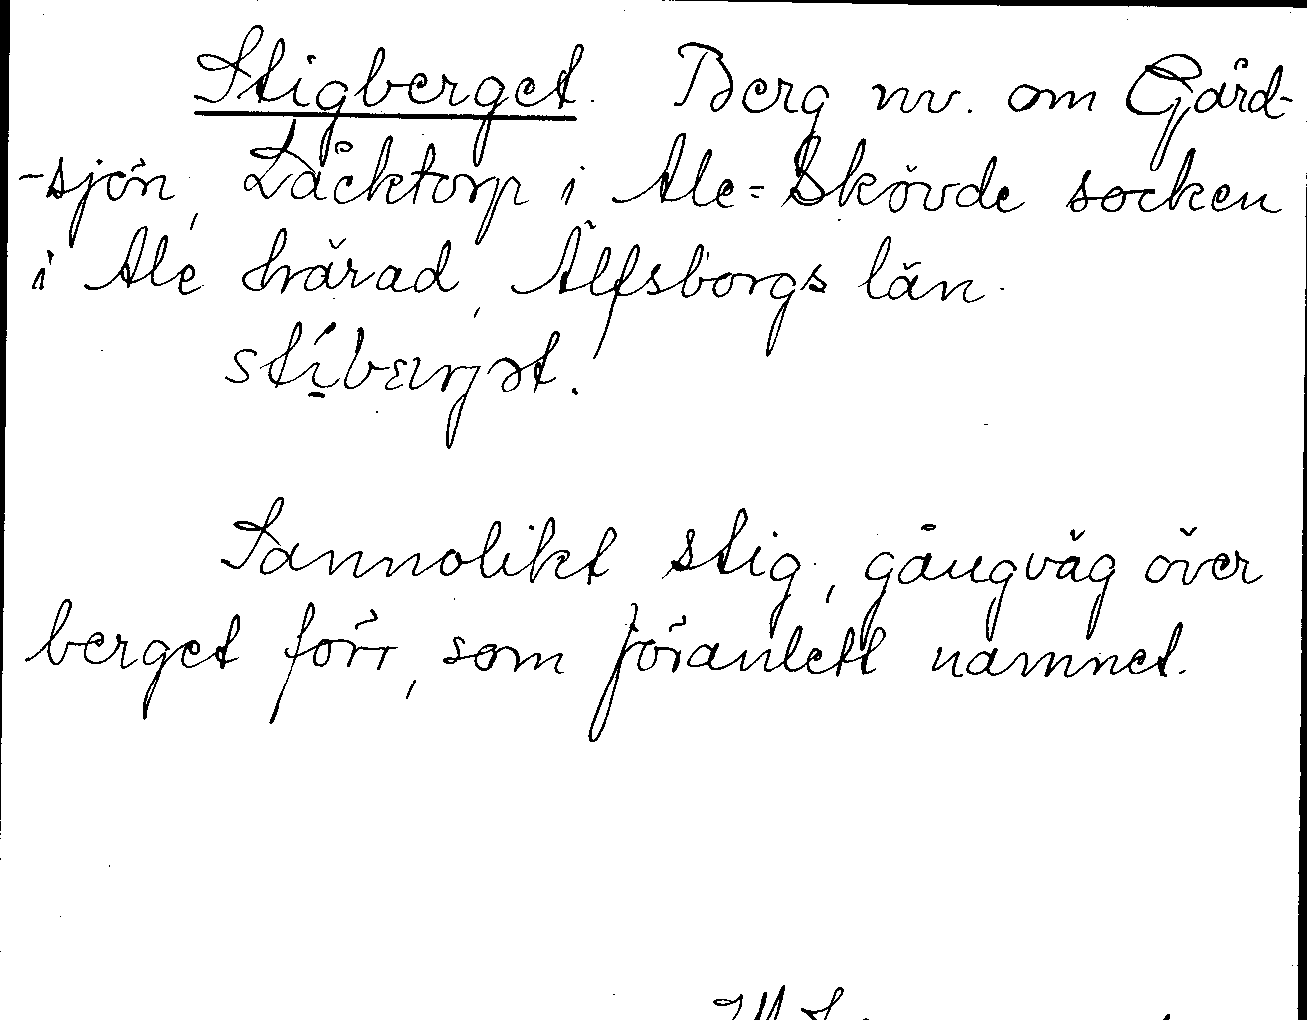 Stigberget. Berg nv. om Gård-
-sjön, Låcktorp i Ale=Skövde socken
i Ale härad, Älfsborgs län.
Sannolikt stig, gångväg över
berget förr, som föranlett namnet.